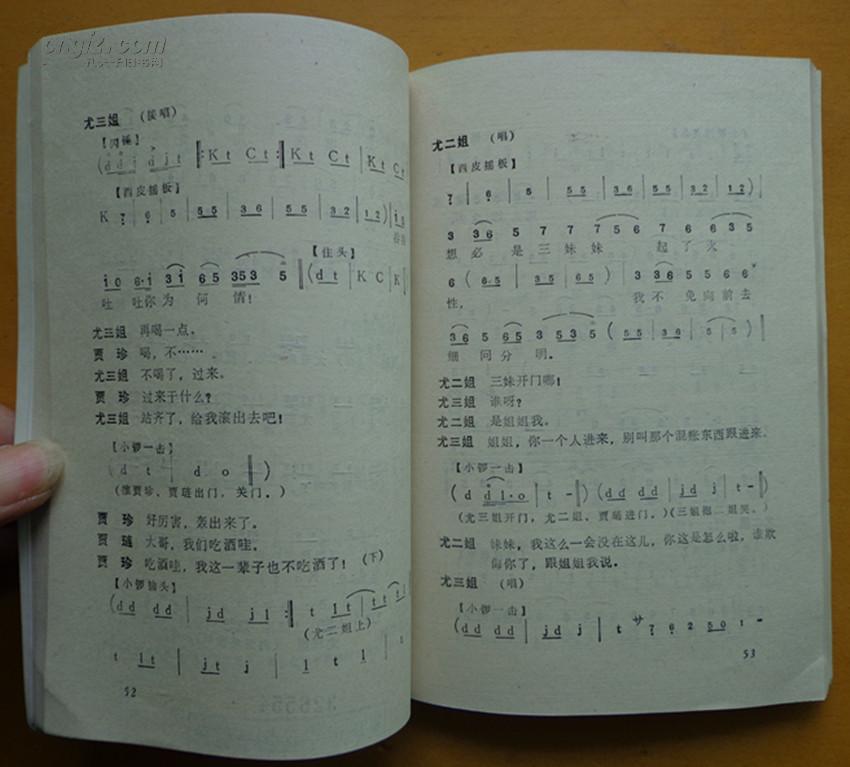 尤三姐 (接唱)
【闪锤】
(d d i d j t ‖: K t C t :‖ K t C t | K t C t
【西皮摇板】
K 7 | 6 | 5 | 5 5 | 3 6 | 5 5 | 3 2 | 1 2 ) | i 5
【住头】
i 0 6·i 3 i 6 5 3 5 3 5 ‖ ( d t | K C | K
吐 吐你为 何 情!
尤三姐 再喝一点。
贾 珍 喝,不……。
尤三姐 不喝了,过来。
贾 珍 过来干什么?
尤三姐 站齐了,给我滚出去吧!
【小锣一击】
( d t | d o ‖ )
(推贾珍、贾琏出门,关门。)
贾 珍 好厉害,轰出来了。
贾 琏 大哥,我们吃酒哇。
贾 珍 吃酒哇,我这一辈子也不吃酒了! (下)
【小锣抽头】
( d d d d | j d j l :‖ t l t | t t t
(尤二姐上)
t l t | j t j | l t l
52
尤二姐 (唱)
【西皮摇板】
7 | 6 | 5 | 5 5 | 3 6 | 5 5 | 3 2 | 1 2 ) |
3 3 6 5 7 7 7 5 6 7 6 6 3 5
想 必 是 三 妹 妹 起 了 火
6 ( 6 5 | 3 5 | 3 5 | 5 ) 3 3 6 5 5 6 7 6
性, 我 不 免 向 前 去
3 6 5 6 5 3 5 3 5 ( 5 5 | 3 5 | 3 5 | 5 ) ‖
细 问 分 明。
尤二姐 三妹开门哪!
尤三姐 谁呀?
尤二姐 是姐姐我。
尤三姐 姐姐,你一个人进来,别叫那个混账东西跟进来。
【小锣一击】
( d d l · o | t - ‖ ) ( d d d d | j d j | t - ‖ )
(尤三姐开门,尤二姐、贾琏进门。)(三姐抱二姐哭。)
尤二姐 妹妹,我这么一会没在这儿,你这是怎么啦,谁欺
侮你了,跟姐姐我说。
尤三姐 (唱)
【小锣一击】
( d d d d | j d j | t サ 7 6 2 5 0 1 -
53